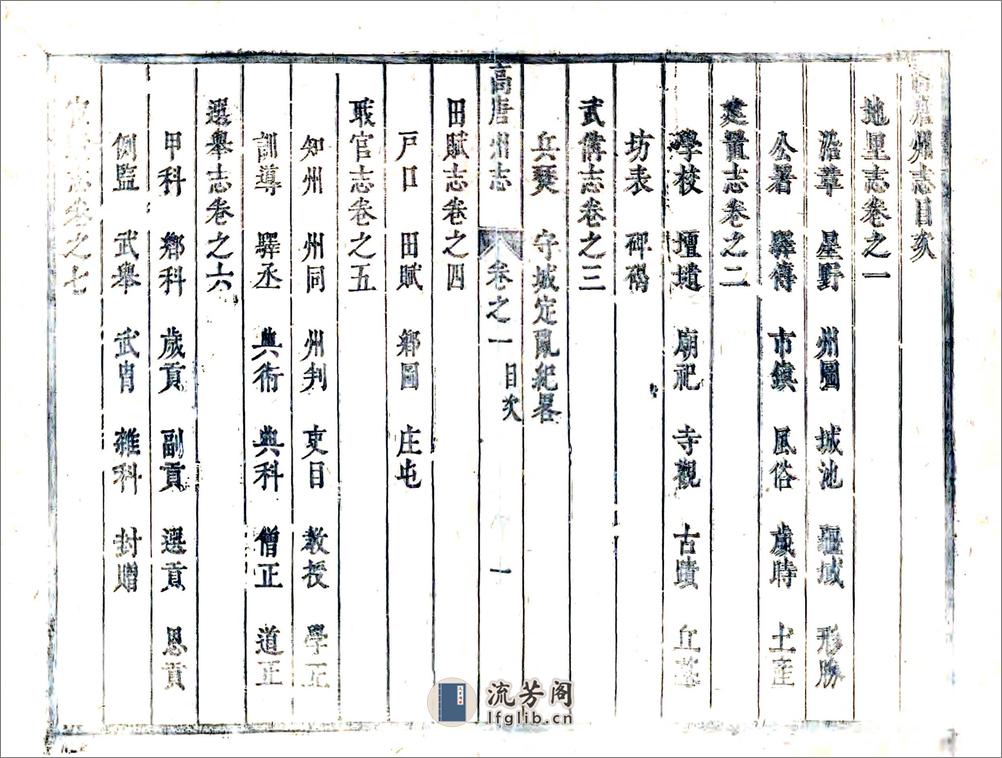 高唐州志目次
地里志卷之一
沿革 星野 州圖 城池 疆域 形勝
公署 驛傳 市鎮 風俗 歲時 土産
建置志卷之二
學校 壇壝 廟祀 寺觀 古蹟 丘墓
坊表 碑碣
武備志卷之三
兵燹 守城定亂紀畧
高唐州志 卷之一 目次 一
田賦志卷之四
戸口 田賦 鄉圖 庄屯
職官志卷之五
知州 州同 州判 吏目 教授 學正
訓導 驛丞 典術 典科 僧正 道正
選舉志卷之六
甲科 鄉科 歲貢 副貢 選貢 恩貢
例監 武舉 武胄 雜科 封贈
志卷之七
流芳阁
lfglib.cn